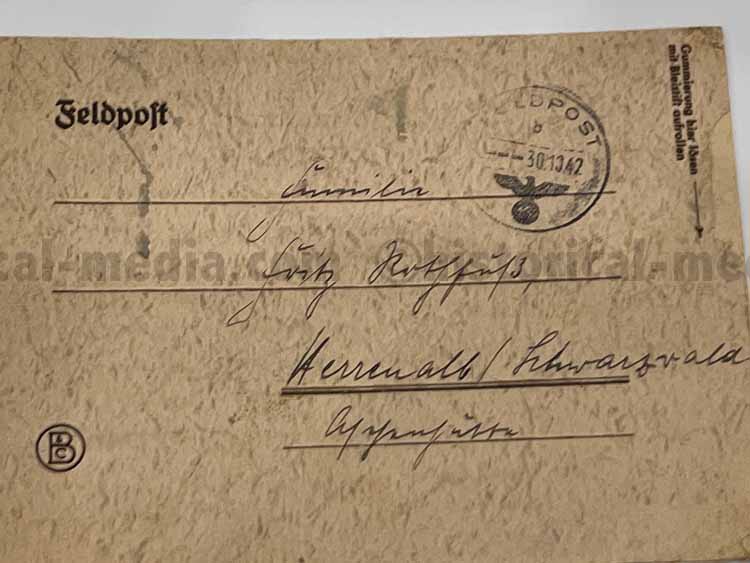 Feldpost
Gummierung hier lösen
mit Bleistift aufrollen
FELDPOST
b
---30.10.42
Familie
Fritz Rothfuß,
cal-media.com ©historical-me
Herrenalb/Schwarzwald
Aschenhütte
BDC